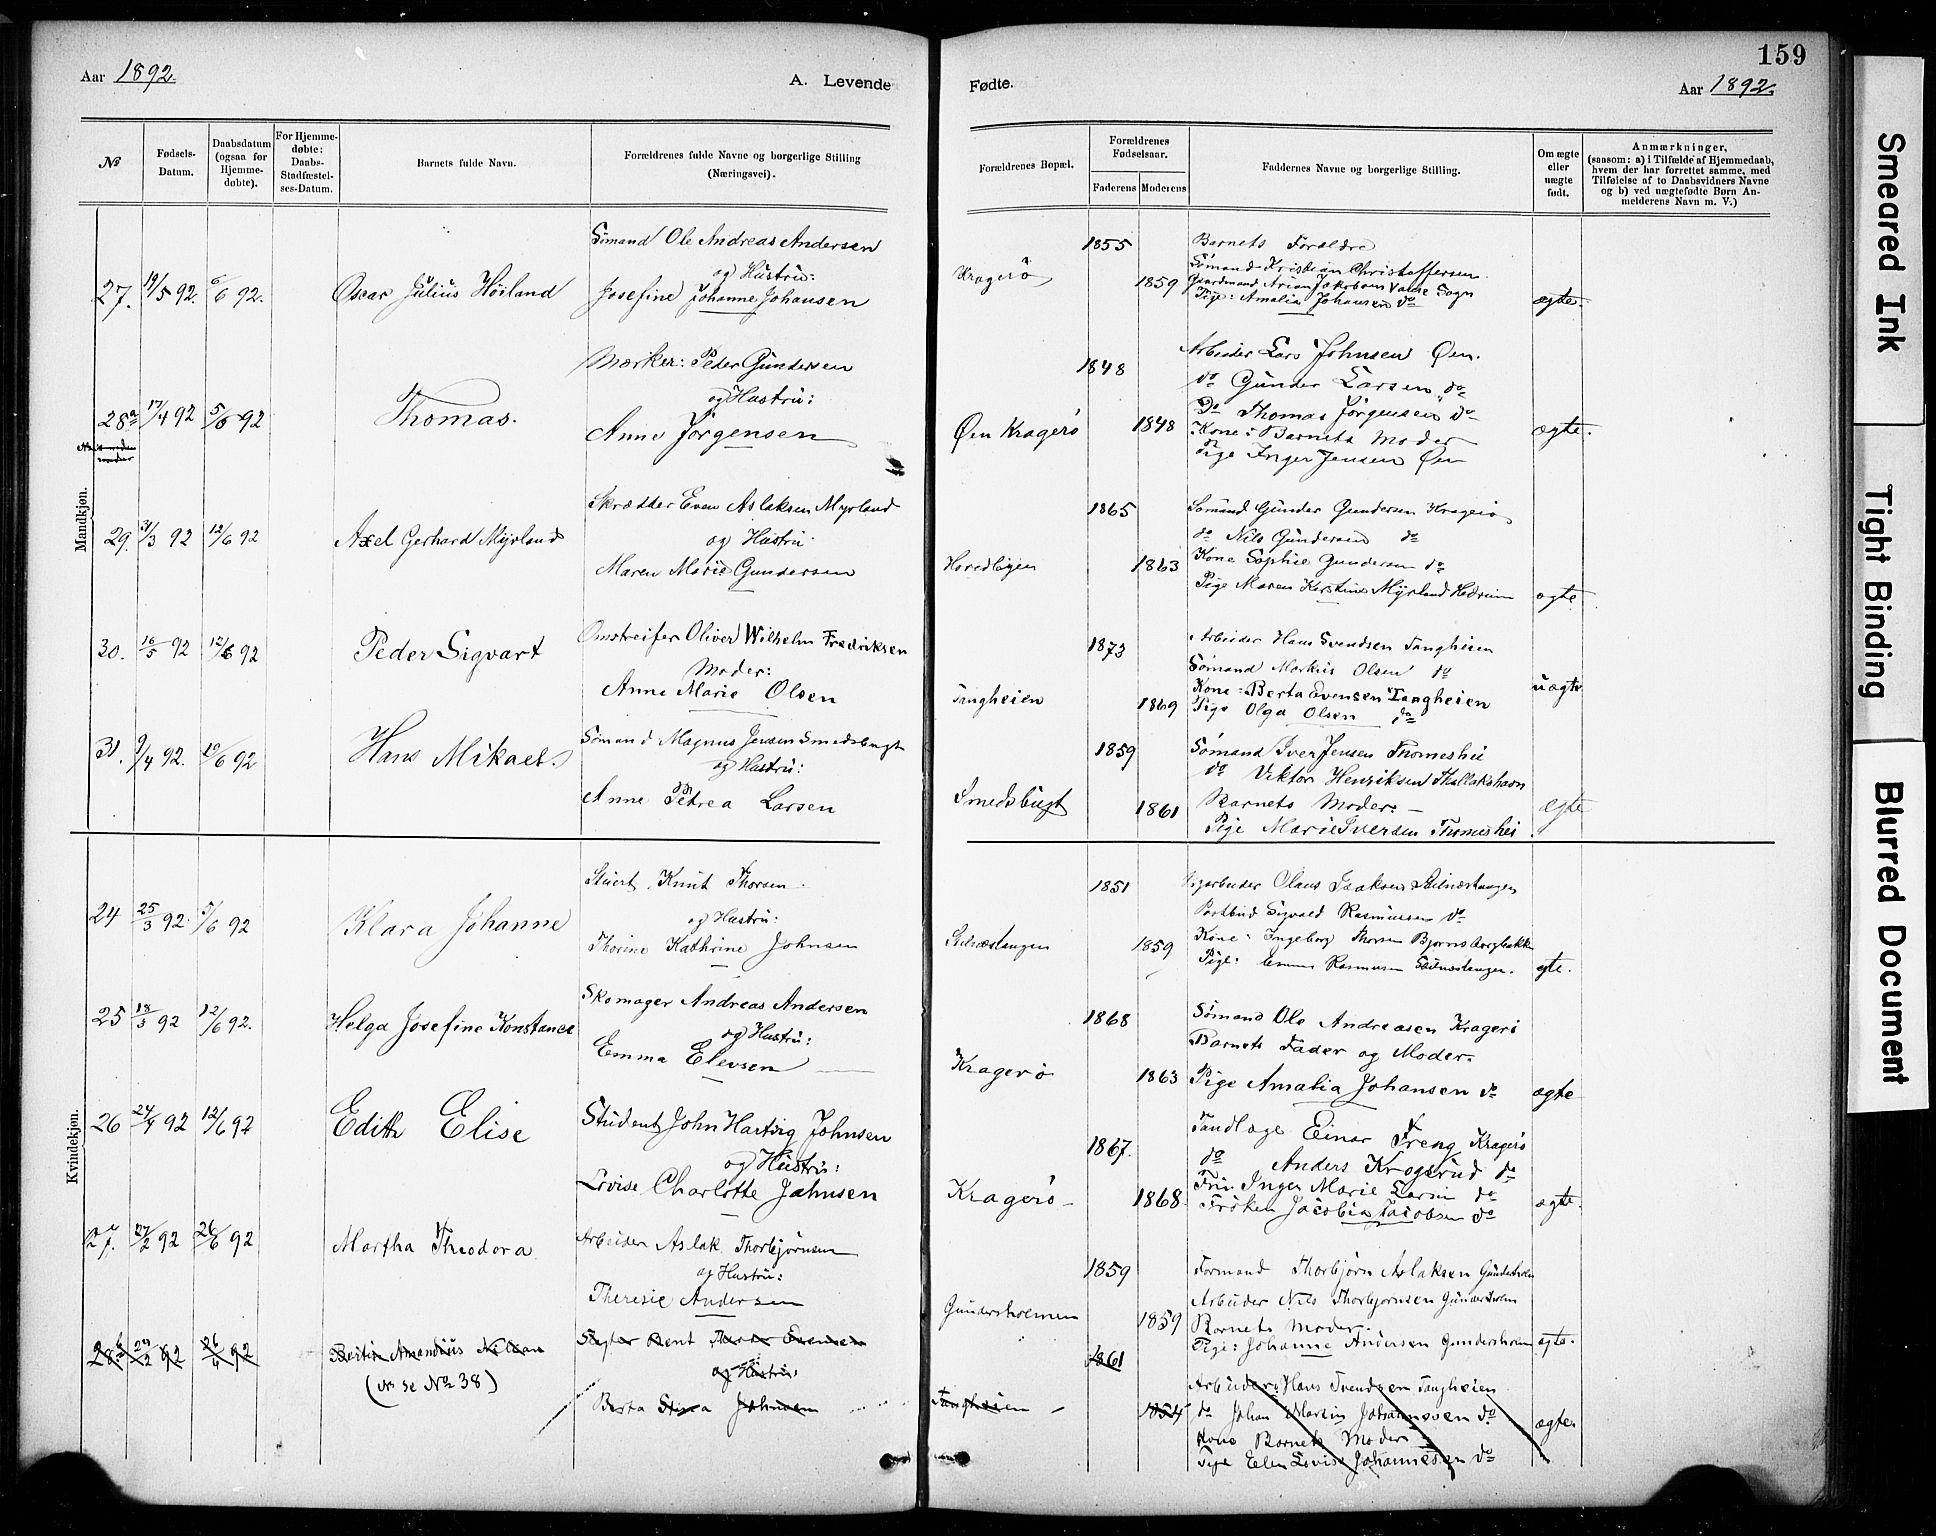 159
Aar 1892.
A. Levende
Fødte.
Aar 1892.
No
Fødsels-Datum.
Daabsdatum (ogsaa for Hjemme-døbte).
For Hjemme-døbte: Daabs-Stadfæstel-ses-Datum.
Barnets fulde Navn.
Forældrenes fulde Navne og borgerlige Stilling (Næringsvei).
Forældrenes Bopæl.
Forældrenes Fødselsaar.
Faderens
Moderens
Faddernes Navne og borgerlige Stilling.
Om ægte eller uægte født.
Anmærkninger,
(saasom: a) i Tilfælde af Hjemmedaab,
hvem der har forrettet samme, med
Tilføielse af to Daabsvidners Navne
og b) ved uægtefødte Børn An-
melderens Navn m. V.)
Mandkjøn.
27. 19/5 92. 6/6 92. Oscar Julius Höiland
Sömand Ole Andreas Andersen
og Hustru:
Josefine Johanne Johansen
Kragerö
1855
1859
Barnets Forældre
Sömand Kristian Christoffersen
Gaardmand Sogn
Pige: Amalia Johansen do
ægte.
28a 17/4 92 5/6 92 Thomas.
Mærker: Peder Gundersen
og Hustru:
Anne Jörgensen
Øen Kragerö
1848
1848
Arbeider Lars Johnsen Øen.
do Gunder Larsen do
Do Thomas Jörgensen do
Kone: Barnets Moder
Pige Inger Jensen Øen
ægte.
29. 31/3 92 12/6 92 Axel Gerhard Myrland
Skrædder Even Aslaksen Myrland
og Hustru
Maren Marie Gundersen
1865
1863
Sömand Gunder Gundersen Kragerö
do Nils Gundersen do
Kone Sophie Gundersen do
Pige Maren Kerstine Myrland
ægte
30. 16/5 92 12/6 92 Peder Sigvart
Omstreifer Oliver Wilhelm Fredriksen
Moder:
Anne Marie Olsen
Tangheien
1873
1869
Arbeider Hans Svendsen Tangheien
Sömand Markus Olsen do
Kone: Berta Evensen Tangheien
Pige Olga Olsen do
uægte
31. 9/4 92. 19/6 92 Hans Mikael.
Sömand Magnus Jensen Smedsbugt
og Hustru:
Anne Petrea Larsen
Smedsbugt
1859
1861
Sömand Iver Jensen Thomeshei
do Viktor Henriksen
Barnets Moder:
Pige Marie Iversen Thomeshei
ægte
Kvindekjøn.
24 25/3 92. 5/6 92 Klara Johanne
Stuert Knut Thorsen
og Hustru:
Thorine Kathrine Johnsen
Stilnæstangen
1851
1859
Olaus Isaksen Stilnæstangen
Postbud Sigvald Rasmussen do
Kone: Ingeborg Thorsen
Pige: Emma Rasmussen Stilnæstangen.
ægte.
25 18/3 92 12/6 92. Helga Josefine Konstance
Skomager Andreas Andersen
og Hustru:
Emma Elevsen
Kragerö
1868
1863
Sömand Ole Andreasen Kragerö
Barnets Fader og Moder.
Pige Amalia Johansen do
ægte
26 24/4 92 12/6 92 Edith Elise
Student John Hartvig Johnsen
og Hustru:
Lovise Charlotte Johnsen
Kragerö
1867.
1868.
Tandlæge Einar Freng Kragerö
do Anders Krogsrud do
Fru Inger Marie Larsen do
Fröken Jacobia Jacobsen do
ægte.
27. 27/2 92 26/6 92 Martha Theodora
Arbeider Aslak Thorbjörnsen
og Hustru:
Theresie Andersen
Gundersholmen
1859
1859
Formand Thorbjörn Aslaksen Gundersholm
Arbeider Nils Thorbjornsen Gundersholm
Barnets Moder.
Pige: Johanne Andersen Gundersholm
ægte.
28b 29/2 92 26/6 92 Bertin Amandius
(se No 38)
og Hustru:
Berta Johnsen
Tangheien
1861
1854
Arbeider Hans Svendsen Tangheien
do Johan Martin Johannesen do
Kone Barnets Moder
Pige Elen Lovise Johannesen do
ægte
Smeared Ink
Tight Binding
Blurred Document